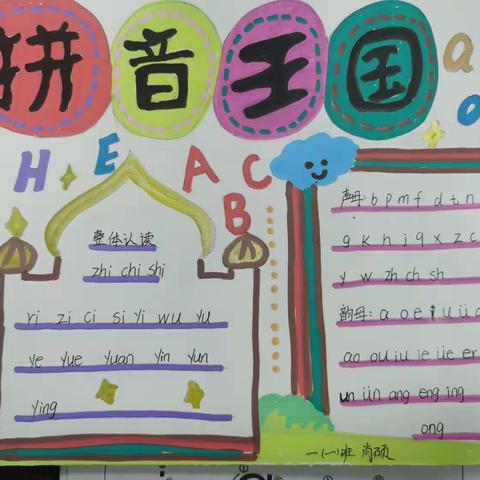 拼音王国
a
o
H E A C
B
整体认读
zhi chi shi
ri zi ci si yi wu yu
ye yue yuan yin yun
ying
声母: b p m f d t n
g k h j q x z c
y w zh ch sh
韵母: a o e i u ü a
ao ou iu ie üe er
un ün ang eng ing
ong
一(一)班 肖硕